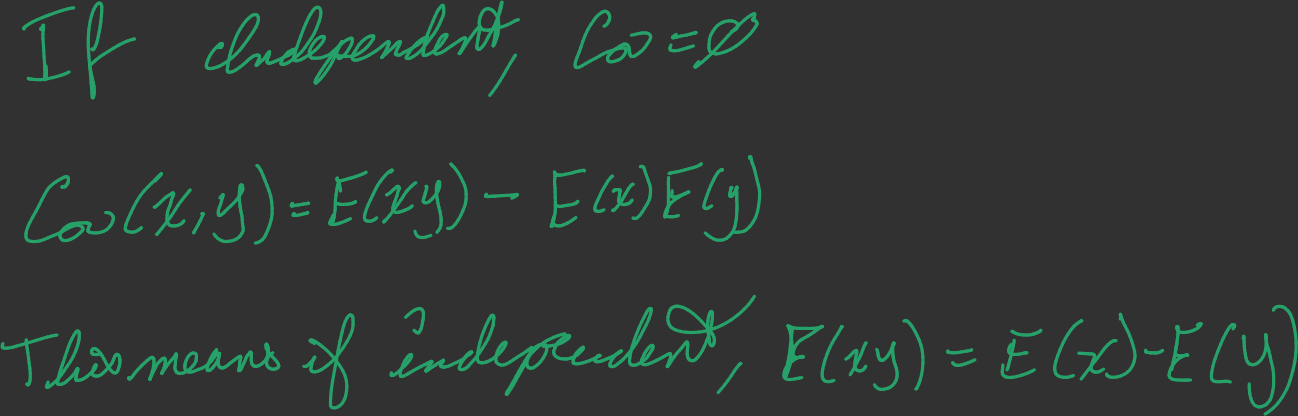 If Independent, Cov = ∅
Cov(x,y) = E(xy) - E(x)E(y)
This means if independent, E(xy) = E(x)-E(y)